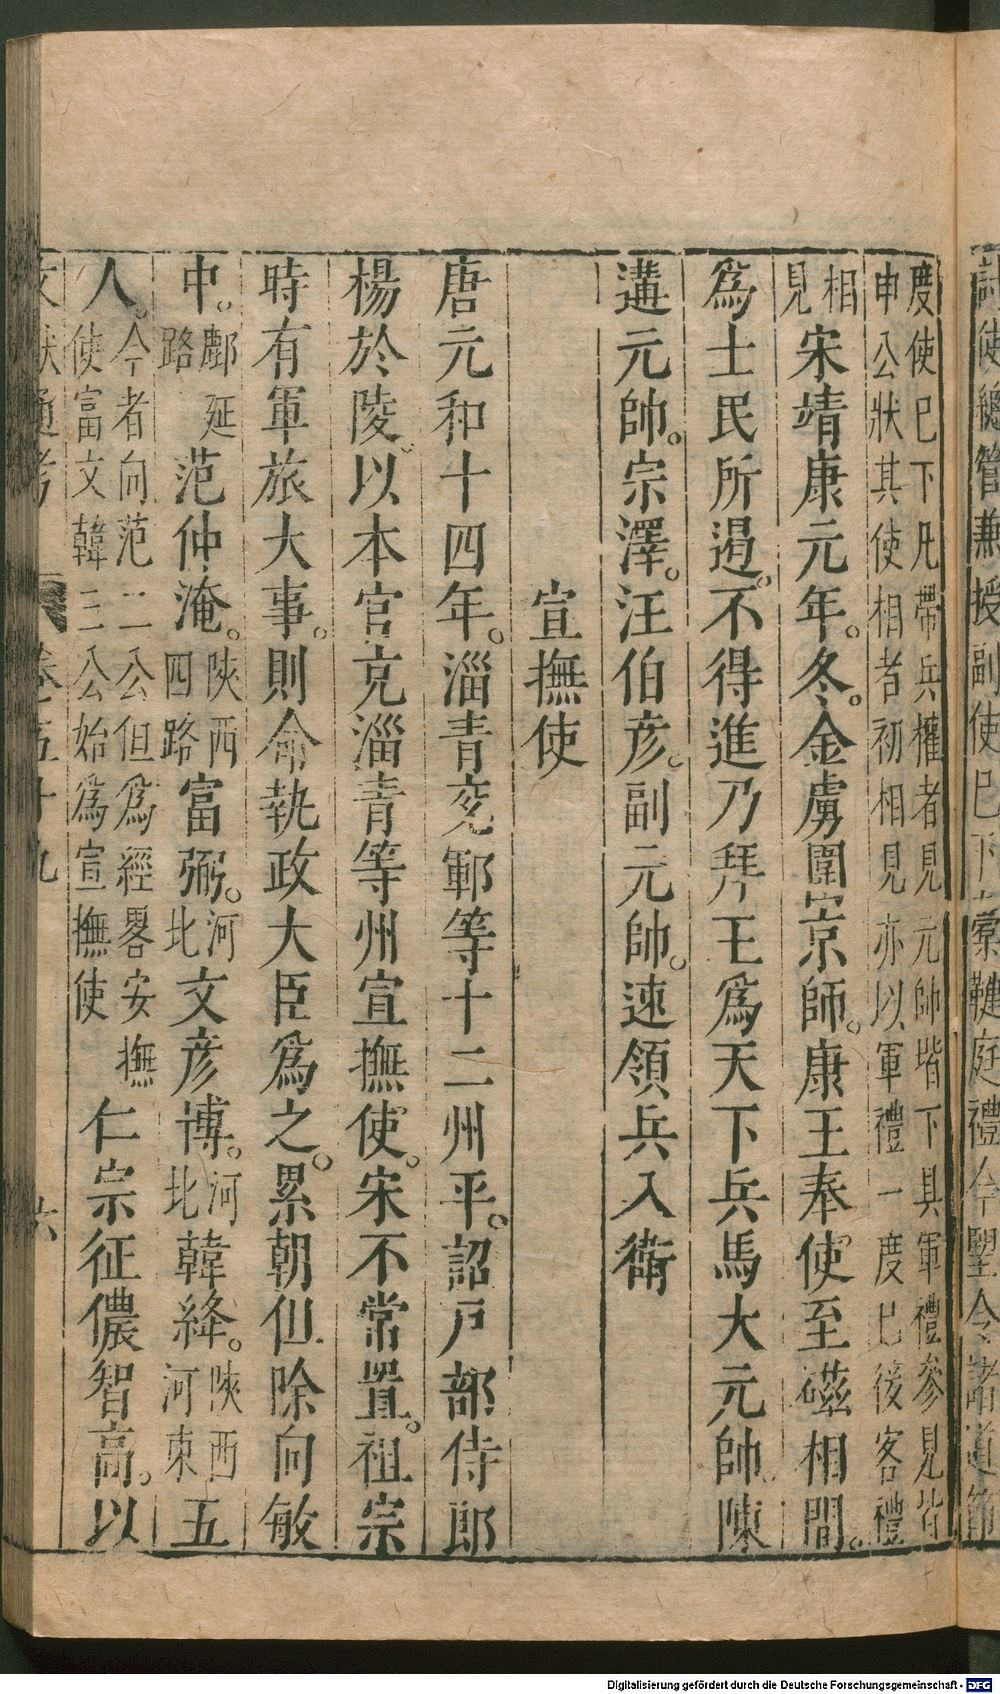 討使總管兼授副使巳下櫜鞬庭禮今望令諸道節
度使巳下凡帶兵權者見元帥堦下具軍禮參見皆
申公狀其使相者初相見亦以軍禮一度已後客禮
相見宋靖康元年。冬。金虜圍京師。康王奉使至磁相間。
爲士民所遏。不得進乃拜王爲天下兵馬大元帥。陳
遘元帥。宗澤。汪伯彦。副元帥。速領兵入衛
宣撫使
唐元和十四年。淄青兖鄆等十二州平。詔戸部侍郎
楊於陵。以本官充淄青等州宣撫使。宋不常置。祖宗
時有軍旅大事。則命執政大臣爲之。累朝但除向敏
中。鄜延路范仲淹。陝西四路富弼。河北文彦博。河北韓絳。陝西河東五
人。今者向范二公但爲經畧安撫使富文韓三公始爲宣撫使仁宗征儂智高。以
文獻通考 卷之五十九 六
Digitalisierung gefördert durch die Deutsche Forschungsgemeinschaft - DFG